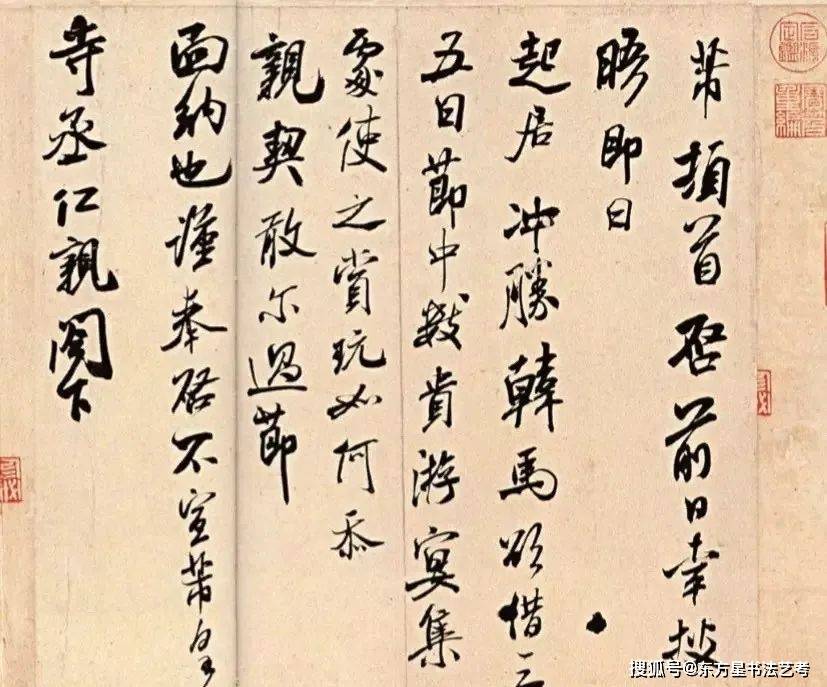 芾頓首啓前日幸披
晤即日
起居沖勝韓馬欲借三
五日節中數貴游宴集
使之賞玩如何忝
親契敢尔過節
面納也謹奉啓不宣芾皇
寺丞仁親閣下
搜狐号@东方星书法艺考